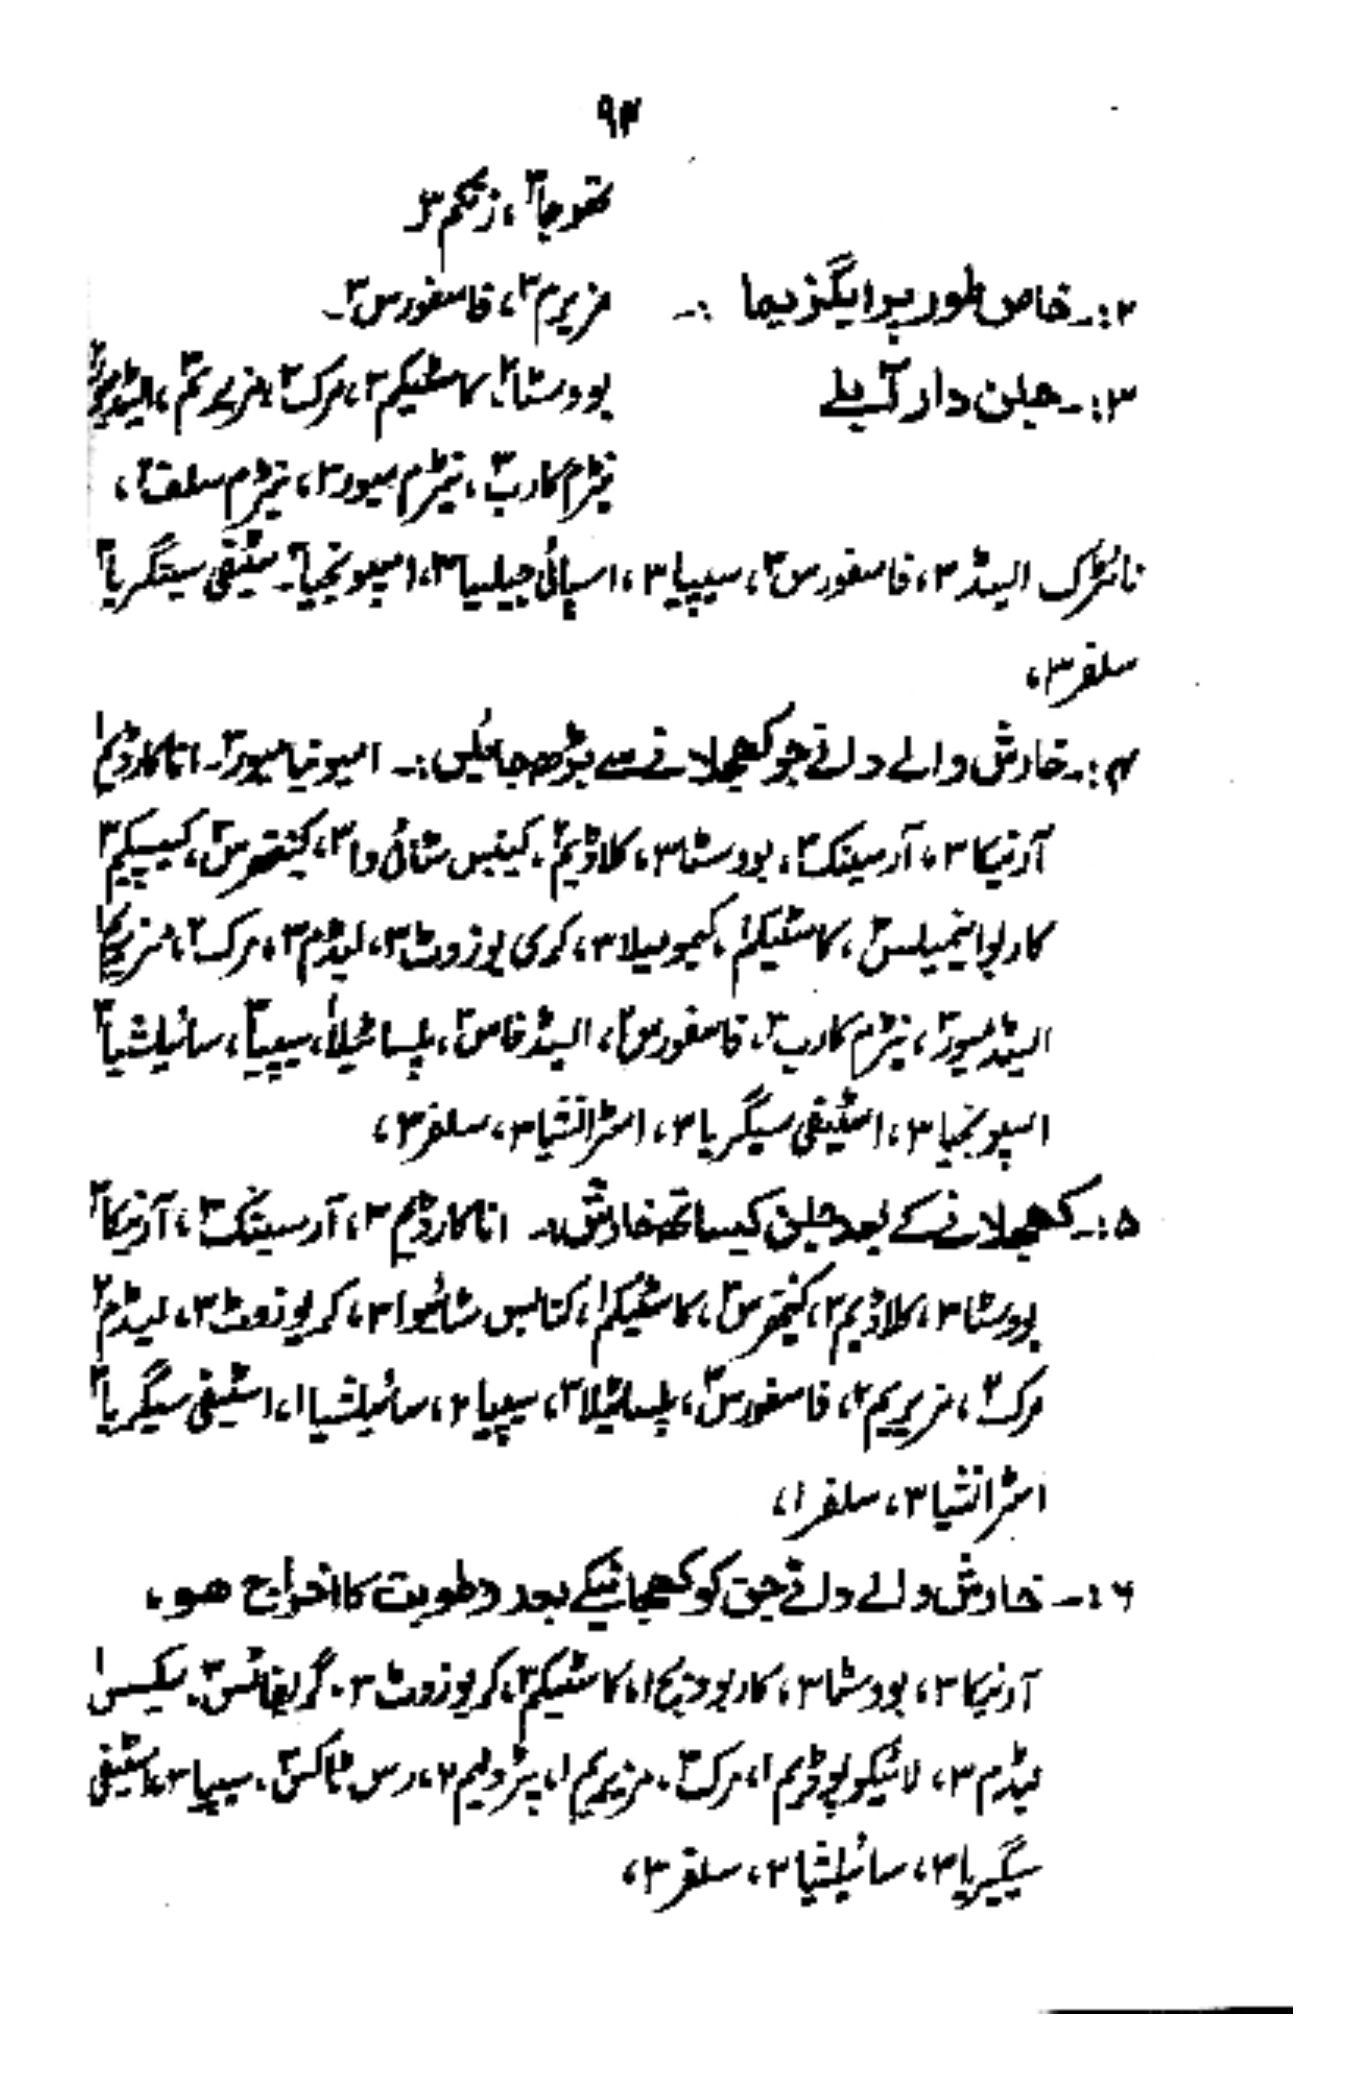 ۹۴
تھوجا۳، زنکم ۳۔
۲:۔ خاص طور پر ایگزیما :۔ مزیرم ۳، فاسفورس ۲۔
۳:۔ جلن دار آبلے بووسٹا ۲، کاسٹیکم ۲، مرک ۲، مزیریم ۳، ایسڈ میور
نیٹرم کارب ۳، نیٹرم میور ۲، نیٹرم سلف ۲،
نائٹرک ایسڈ ۲، فاسفورس ۳، سیپیا ۳، اسپائی جیلیا ۳، اسپونجیا ۲۔ سٹیفی سیگریا ۲
سلفر ۳،
۴:۔ خارش والے دانے جو کھجلانے سے بڑھ جائیں :۔ امیونیا میور ۲۔ اناکارڈیم ۱
آرنیکا ۳، آرسینک ۲، بووسٹا ۳، کلاڈیم ۲، کینبس سٹائی وا ۳، کینتھرس ۲، کیپسیکم ۳
کاربو اینمیلس ۲، کاسٹیکم ۱، کیمومیلا ۳، کری یوزوٹ ۳، لیڈم ۳، مرک ۲، مزیریم
ایسڈ میور ۲، نیٹرم کارب ۲، فاسفورس ۲، ایسڈ فاس ۲، پلساٹیلا ۱، سیپیا ۳، سائیلیشیا ۳
اسپونجیا ۳، اسٹیفی سیگریا ۳، اسٹرانشیا ۳، سلفر ۳،
۵:۔ کھجلانے کے بعد جلن کیساتھ خارش :۔ اناکارڈیم ۳، آرسینک ۳، آرنیکا ۲
بووسٹا ۳، کلاڈیم ۲، کینتھرس ۲، کاسٹیکم ۱، کنابس سٹائیوا ۳، کریوزوٹ ۳، لیڈم ۲
مرک ۲، مزیریم ۲، فاسفورس ۳، پلساٹیلا ۳، سیپیا ۲، سائیلیشیا ۱، اسٹیفی سیگریا ۲
اسٹرانشیا ۳، سلفر ۱،
۶:۔ خارش والے دانے جن کو کھجانیکے بعد رطوبت کا اخراج ھو،
آرنیکا ۲، بووسٹا ۳، کاربو ویج ۱، کاسٹیکم ۳، کریوزوٹ ۳۔ گریفائٹس ۳۔ لیکسس ۱
لیڈم ۳، لائیکوپوڈیم ۱، مرک ۳، مزیریم ۱، پٹرولیم ۲، رس ٹاکس ۳، سیپیا ۲، اسٹیفی
سیگیریا ۳، سائیلیشیا ۲، سلفر ۳،